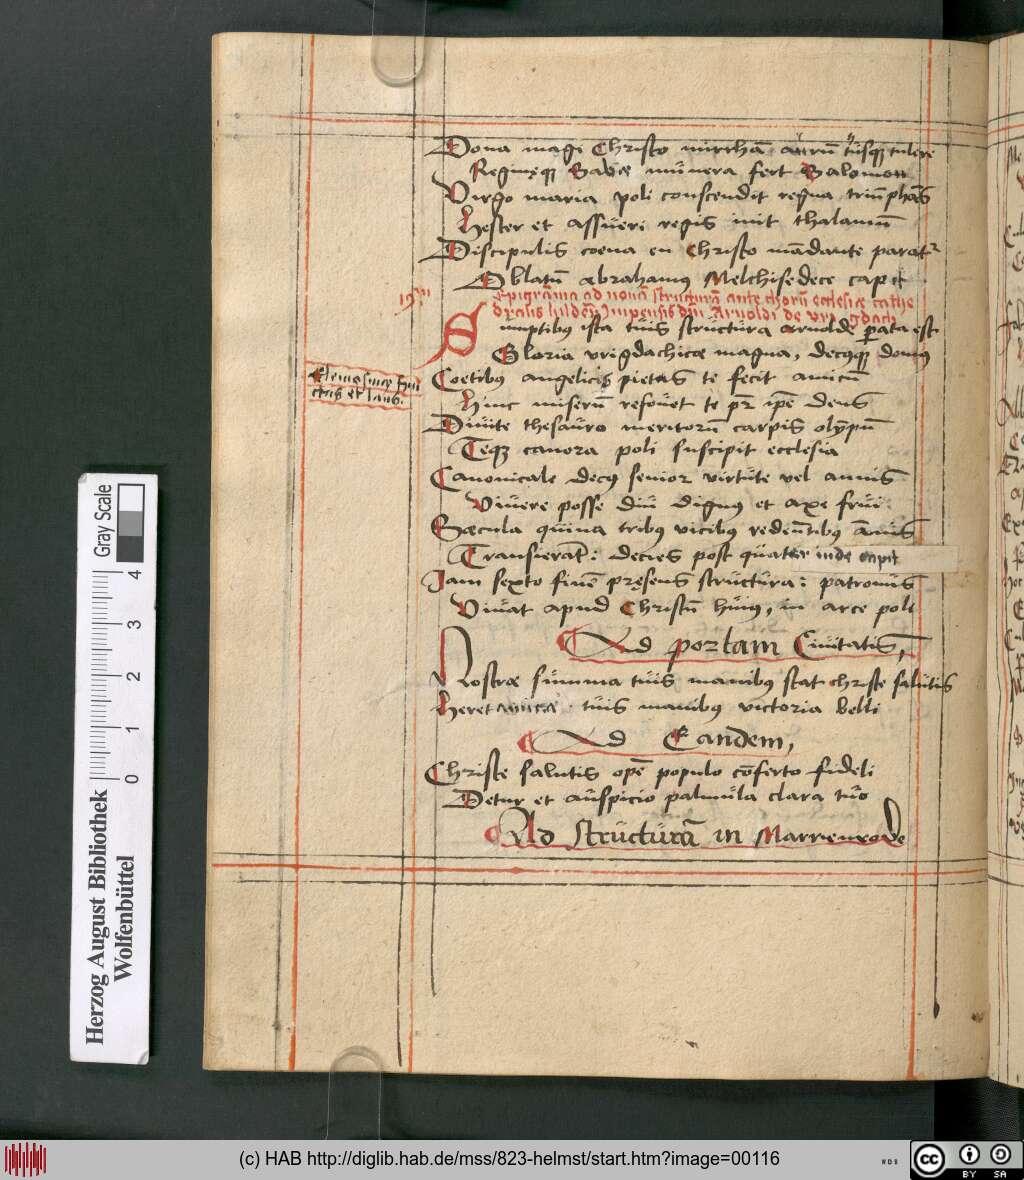 Dona magi Christo mirrhā aurū tusqȝ tulere
Reginęqȝ Sabæ munera fert Salomon
Virgo maria poli conscendit regna triūphās
Hester et assueri regis init thalamū
Discipulis coena en Christo mādante parat᷑
Oblatū abrahamꝰ Melchisedece capit
Epigrāma ad nouā structurā ante chorū ecclesiæ cathe
dralis hildeñ Impensis dñi Arnoldi de Vri gdach
Sumptibꝰ ista tuis structura arnolde pata est
Gloria vrigdachicæ magna, decusqȝ domꝰ
Elemosinæ fru
ctus et laus.
Coetibus angelicis pietas te fecit amicū
Hinc miserū refouet te pr̄ ipē deus
Diuite thesauro meritorū carpis olympū
Teqȝ canora poli suscipit ecclesia
Canonicale decꝰ senior virtute vel annis
Viuere posse diu dignꝰ et axe frui
Sæcula quina tribus vicibus redeūtibus annis
Transierāt: decies post quater inde cepit
Iam sexto finē pręsens structura: patronus
Viuat apud Christū huiꝰ, in arce poli
Ad portam Ciuitatis,
Nostræ summa tuis manibꝰ stat christe salutis
Heret amica tuis manibꝰ victoria belli
Ad Eandem,
Christe salutis opē populo cōferto fideli
Detur et auspicio palmula clara tuo
Ad structurā in Marrienrode
Herzog August Bibliothek
Wolfenbüttel
0 1 2 3 4
Gray Scale
(c) HAB http://diglib.hab.de/mss/823-helmst/start.htm?image=00116
WDB
cc
BY SA